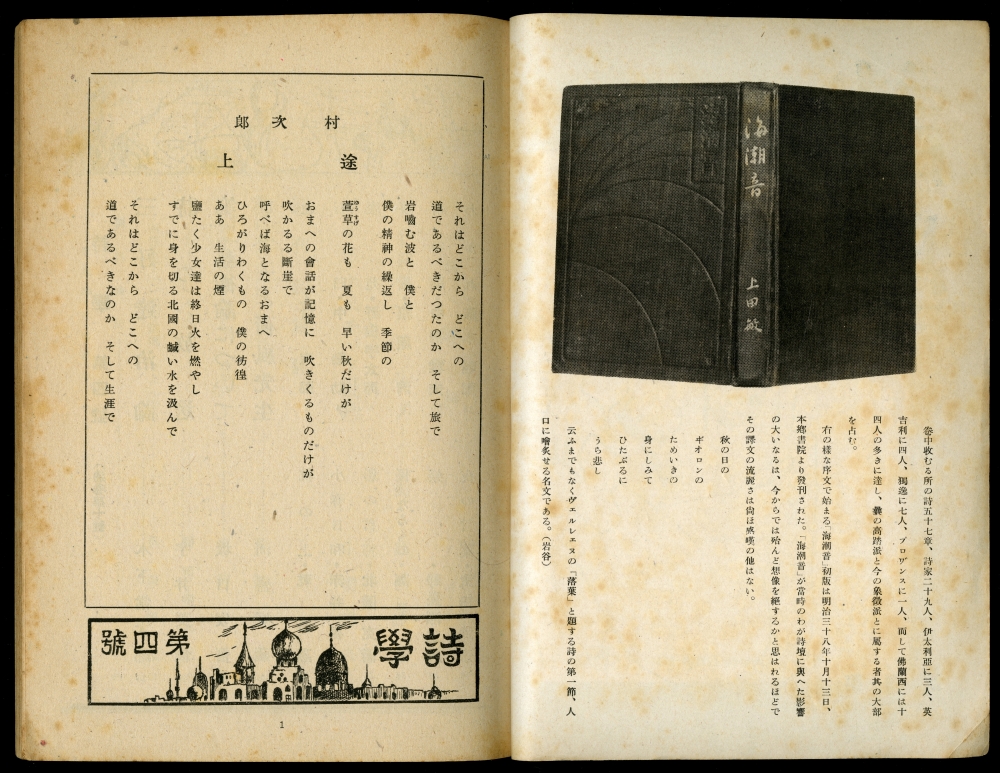 海潮音
上田敏
卷中收むる所の詩五十七章、詩家二十九人、伊太利亞に三人、英
吉利に四人、獨逸に七人、プロヷンスに一人、而して佛蘭西には十
四人の多きに達し、曩の高踏派と今の象徵派とに屬する者其の大部
を占む。
右の樣な序文で始まる「海潮音」初版は明治三十八年十月十三日、
本鄕書院より發刊された。「海潮音」が當時のわが詩壇に與へた影響
の大いなるは、今からでは殆んど想像を絕するかと思はれるほどで
その譯文の流麗さは尙ほ感嘆の他はない。
秋の日の
ギオロンの
ためいきの
身にしみて
ひたぶるに
うら悲し
云ふまでもなくヴェルレェヌの「落葉」と題する詩の第一節、人
口に噲炙せる名文である。（岩谷）
村次郎
途上
それはどこから　どこへの
道であるべきだつたのか　そして旅で
岩嚙む波と　僕と
僕の精神の繰返し　季節の
萱草の花も　夏も　早い秋だけが
おまへの會話が記憶に　吹きくるものだけが
吹かるる斷崖で
呼べば海となるおまへ
ひろがりわくもの　僕の彷徨
ああ　生活の煙
鹽たく少女達は終日火を燃やし
すでに身を切る北國の鹹い水を汲んで
それはどこから　どこへの
道であるべきなのか　そして生涯で
詩學
第四號
1